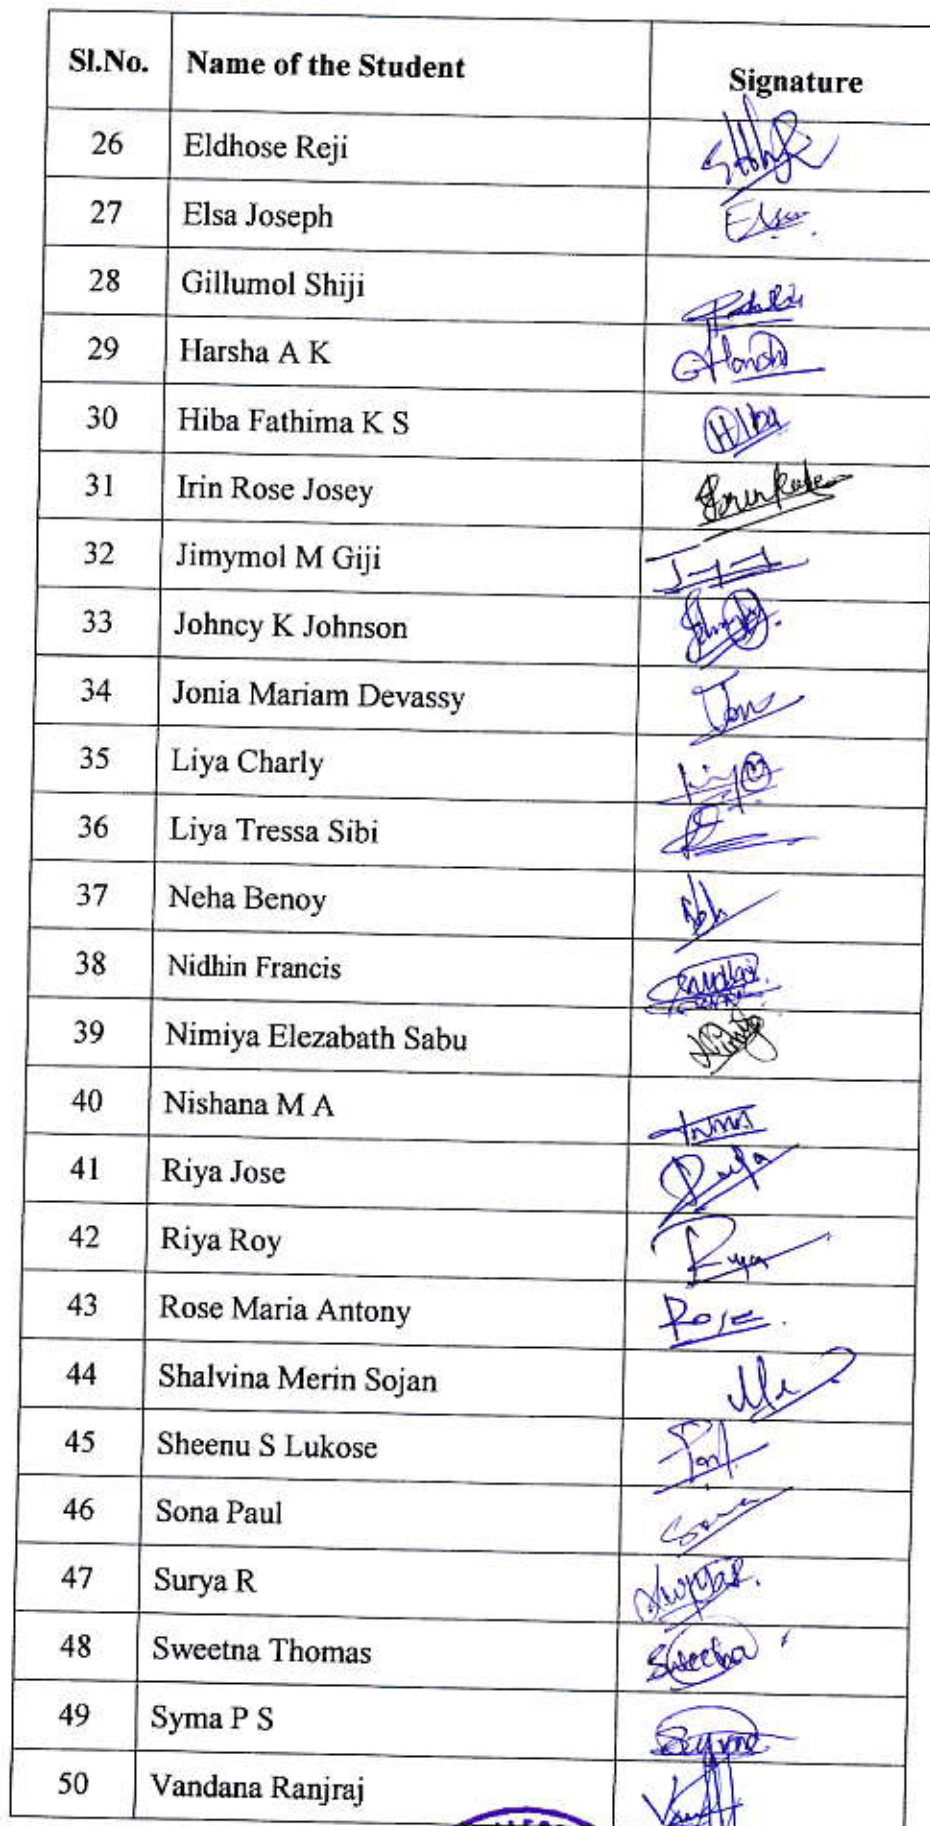 Sl.No. Name of the Student Signature
26 Eldhose Reji
27 Elsa Joseph Elsa
28 Gillumol Shiji
29 Harsha A K
30 Hiba Fathima K S Hiba
31 Irin Rose Josey
32 Jimymol M Giji
33 Johncy K Johnson
34 Jonia Mariam Devassy
35 Liya Charly
36 Liya Tressa Sibi
37 Neha Benoy
38 Nidhin Francis
39 Nimiya Elezabath Sabu
40 Nishana M A
41 Riya Jose
42 Riya Roy Riya
43 Rose Maria Antony Rose
44 Shalvina Merin Sojan
45 Sheenu S Lukose
46 Sona Paul Sona
47 Surya R
48 Sweetna Thomas
49 Syma P S
50 Vandana Ranjraj